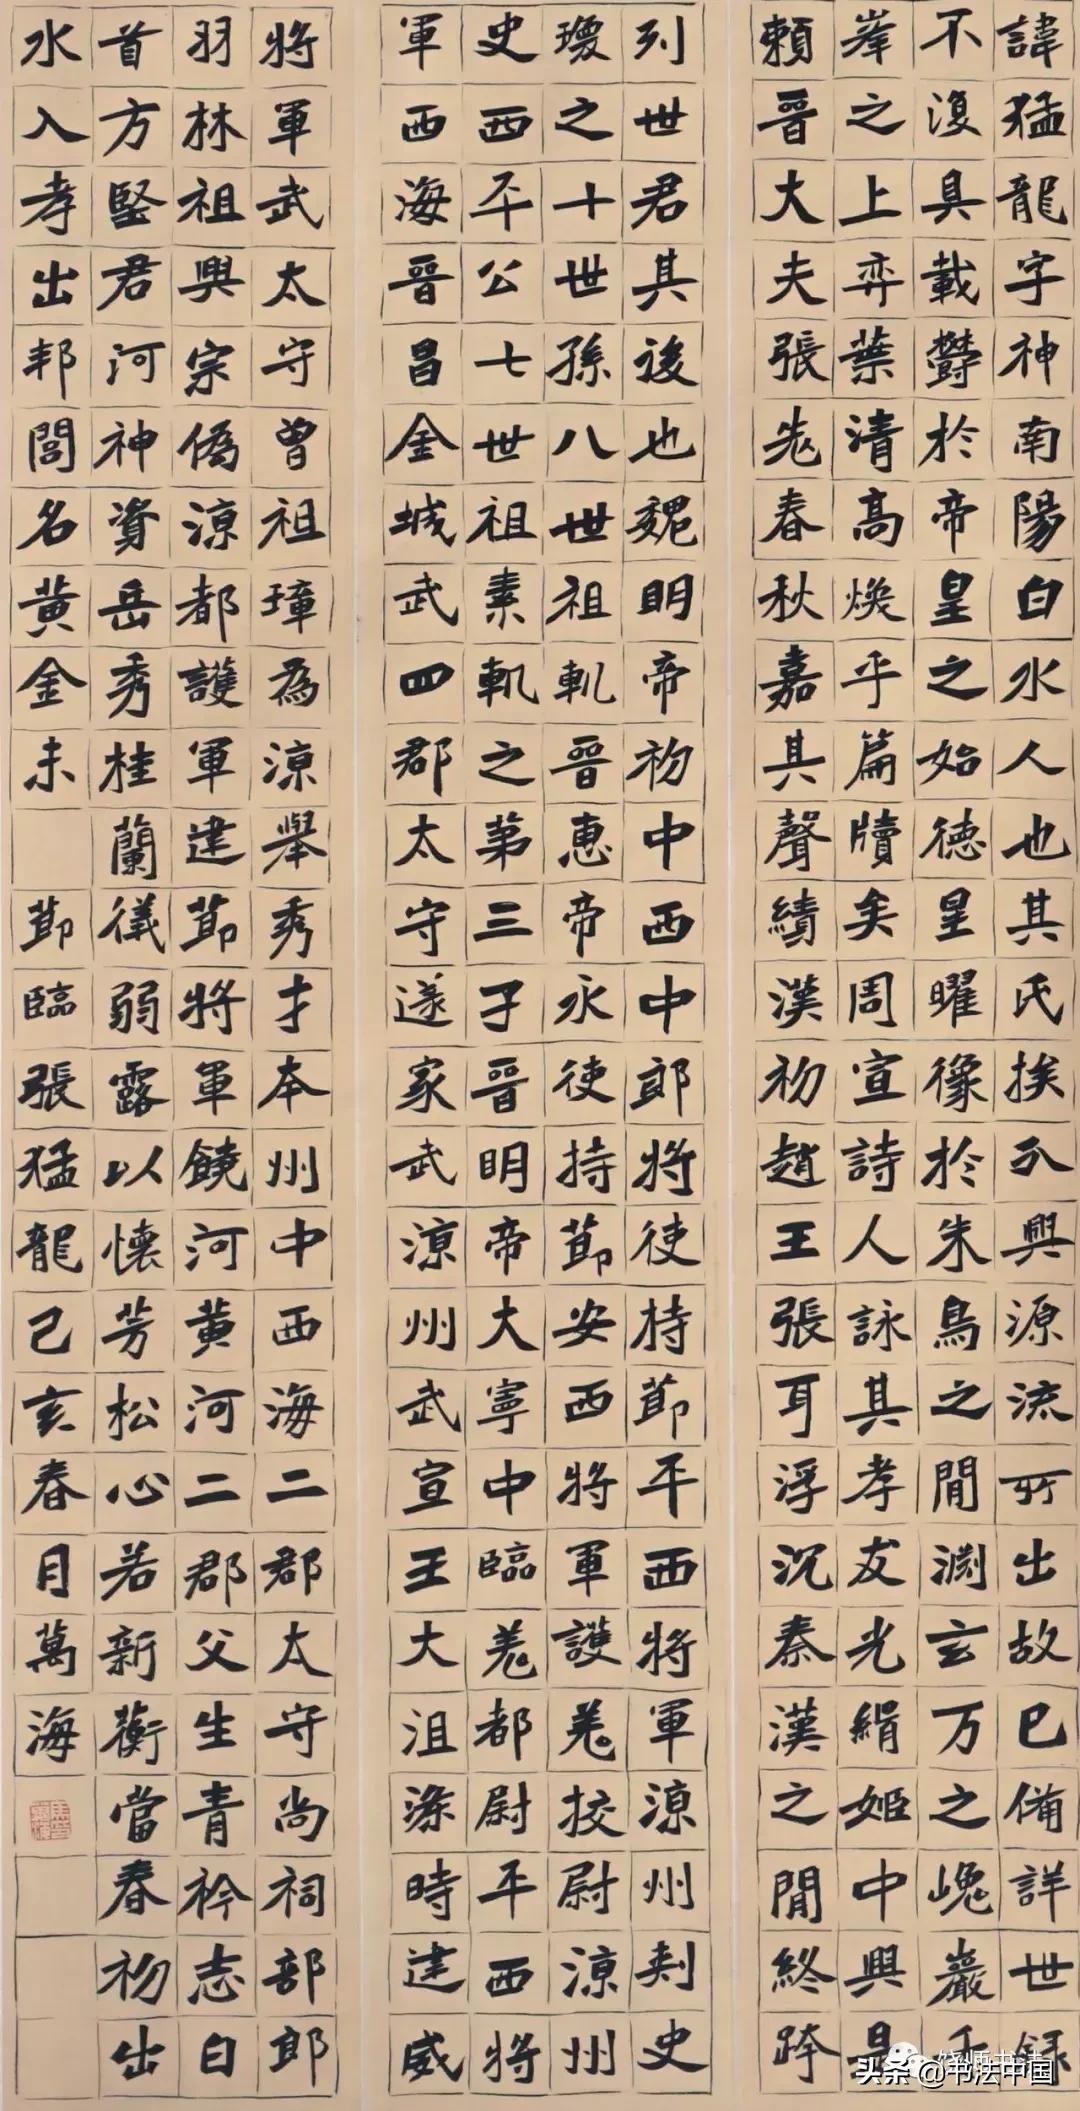 諱猛龍字神南陽白水人也其氏族分興源流所出故已備詳世録
不復具載欝於帝皇之始德星曜像於朱鳥之閒淵玄万之嵬巖千
峯之上弈葉清高煥乎篇牘矣周宣詩人詠其孝友光緝姬中興是
賴晉大夫張老春秋嘉其聲績漢初趙王張耳浮沉秦漢之閒終跨
列世君其後也魏明帝初中西中郎將使持節平西將軍涼州刾史
瓊之十世孫八世祖軌晉惠帝永使持節安西將軍護羌挍尉涼州
史西平公七世祖素軌之第三子晉明帝大寧中臨羌都尉平西將
軍西海晉昌金城武四郡太守遂家武涼州武宣王大沮渠時建威
將軍武太守曾祖璋為涼舉秀才本州中西海二郡太守尚祠部郎
羽林祖興宗偽涼都護軍建節將軍饒河黄河二郡父生青衿志白
首方堅君河神資岳秀桂蘭儀弱露以懷芳松心若新蘅當春初出
水入孝出邦閭名黄金未 節臨張猛龍己亥春月萬海
头条 @书法中国